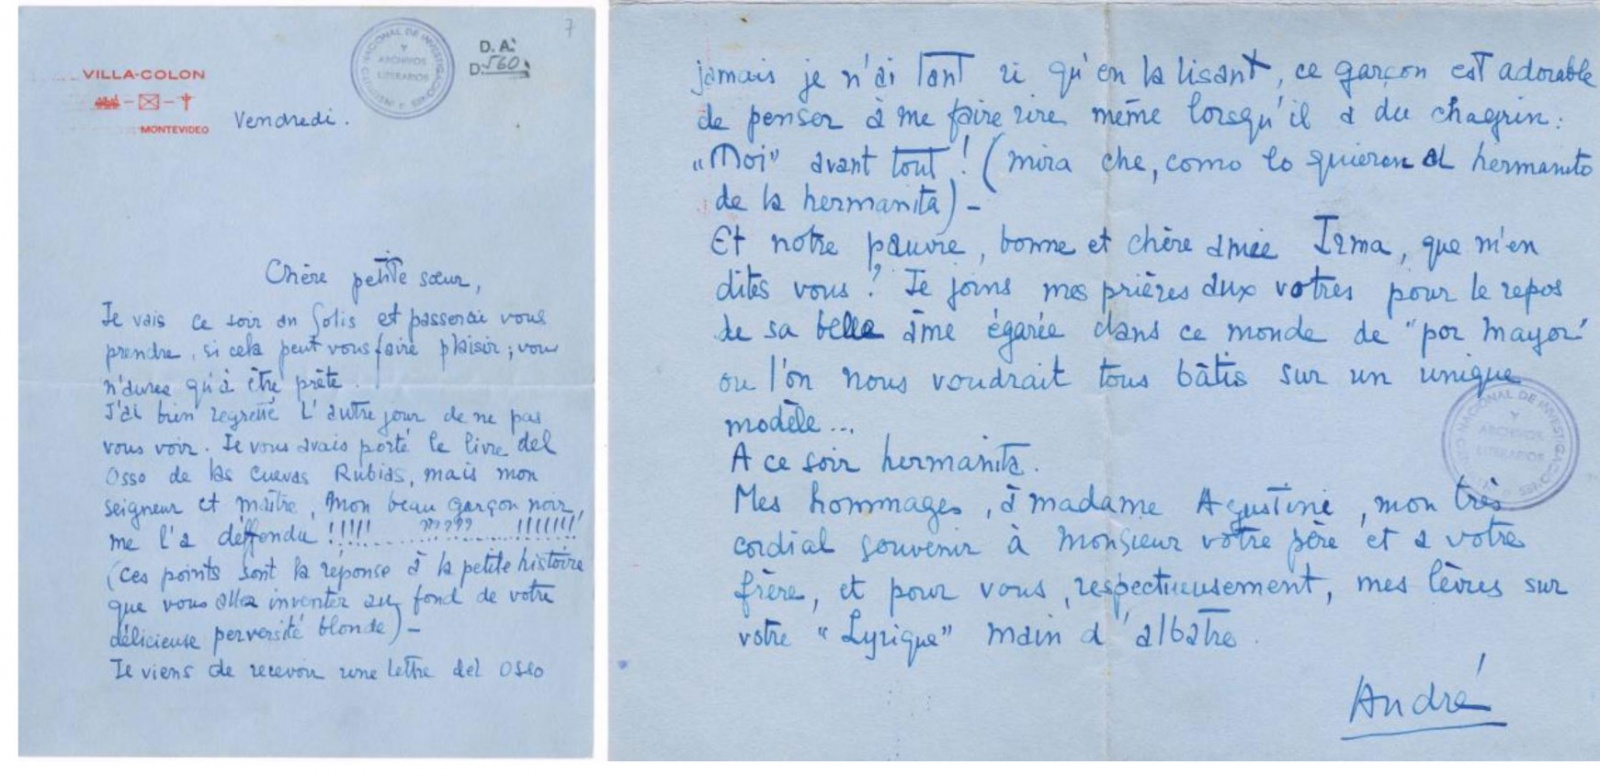 7
D. A.
D. 560
INSTITUTO NACIONAL DE INVESTIGACIONES Y
ARCHIVOS
LITERARIOS
VILLA-COLON
MONTEVIDEO
Vendredi.
Chère petite sœur,
Je vais ce soir au Solis et passerai vous
prendre, si cela peut vous faire plaisir; vous
n'aurez qu'à être prête.
J'ai bien regretté l'autre jour de ne pas
vous voir. Je vous avais porté le livre del
Osso de las Cuevas Rubias, mais mon
seigneur et maître, mon beau garçon noir,
me l'a deffendu !!!!!........?????.....!!!!!!!
(ces points sont la réponse à la petite histoire
que vous allez inventer au fond de votre
délicieuse perversité blonde) –
Je viens de recevoir une lettre del Osso
jamais je n'ai tant ri qu'en la lisant, ce garçon est adorable
de penser à me faire rire même lorsqu'il a du chagrin:
"Moi" avant tout! (mira che, como lo quieren al hermanito
de la hermanita) –
Et notre pauvre, bonne et chère amie Irma, que m'en
dites vous? Je joins mes prières aux votres pour le repos
de sa belle âme égarée dans ce monde de "por mayor"
ou l'on nous voudrait tous bâtis sur un unique
modèle...
A ce soir hermanita.
Mes hommages, à madame Agustine, mon très
cordial souvenir à Monsieur votre père et a votre
frère, et pour vous, respectueusement, mes lèvres sur
votre "Lyrique" main d'albatre.
INSTITUTO NACIONAL DE INVESTIGACIONES Y
ARCHIVOS
LITERARIOS
André